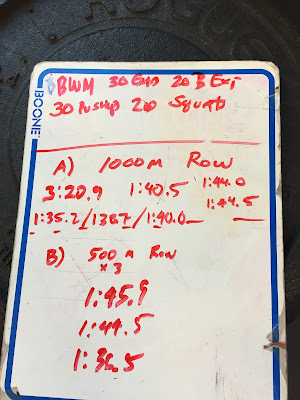 BOONE
BWM 30 GHD 20 B Ext
30 Pushup 200 Squats
A) 1000m Row
3:20.9 1:40.5 1:44.0
1:44.5
1:35.2/1387/1:40.0
B) 500 m Row
x 3
1:45.9
1:44.5
1:36.5